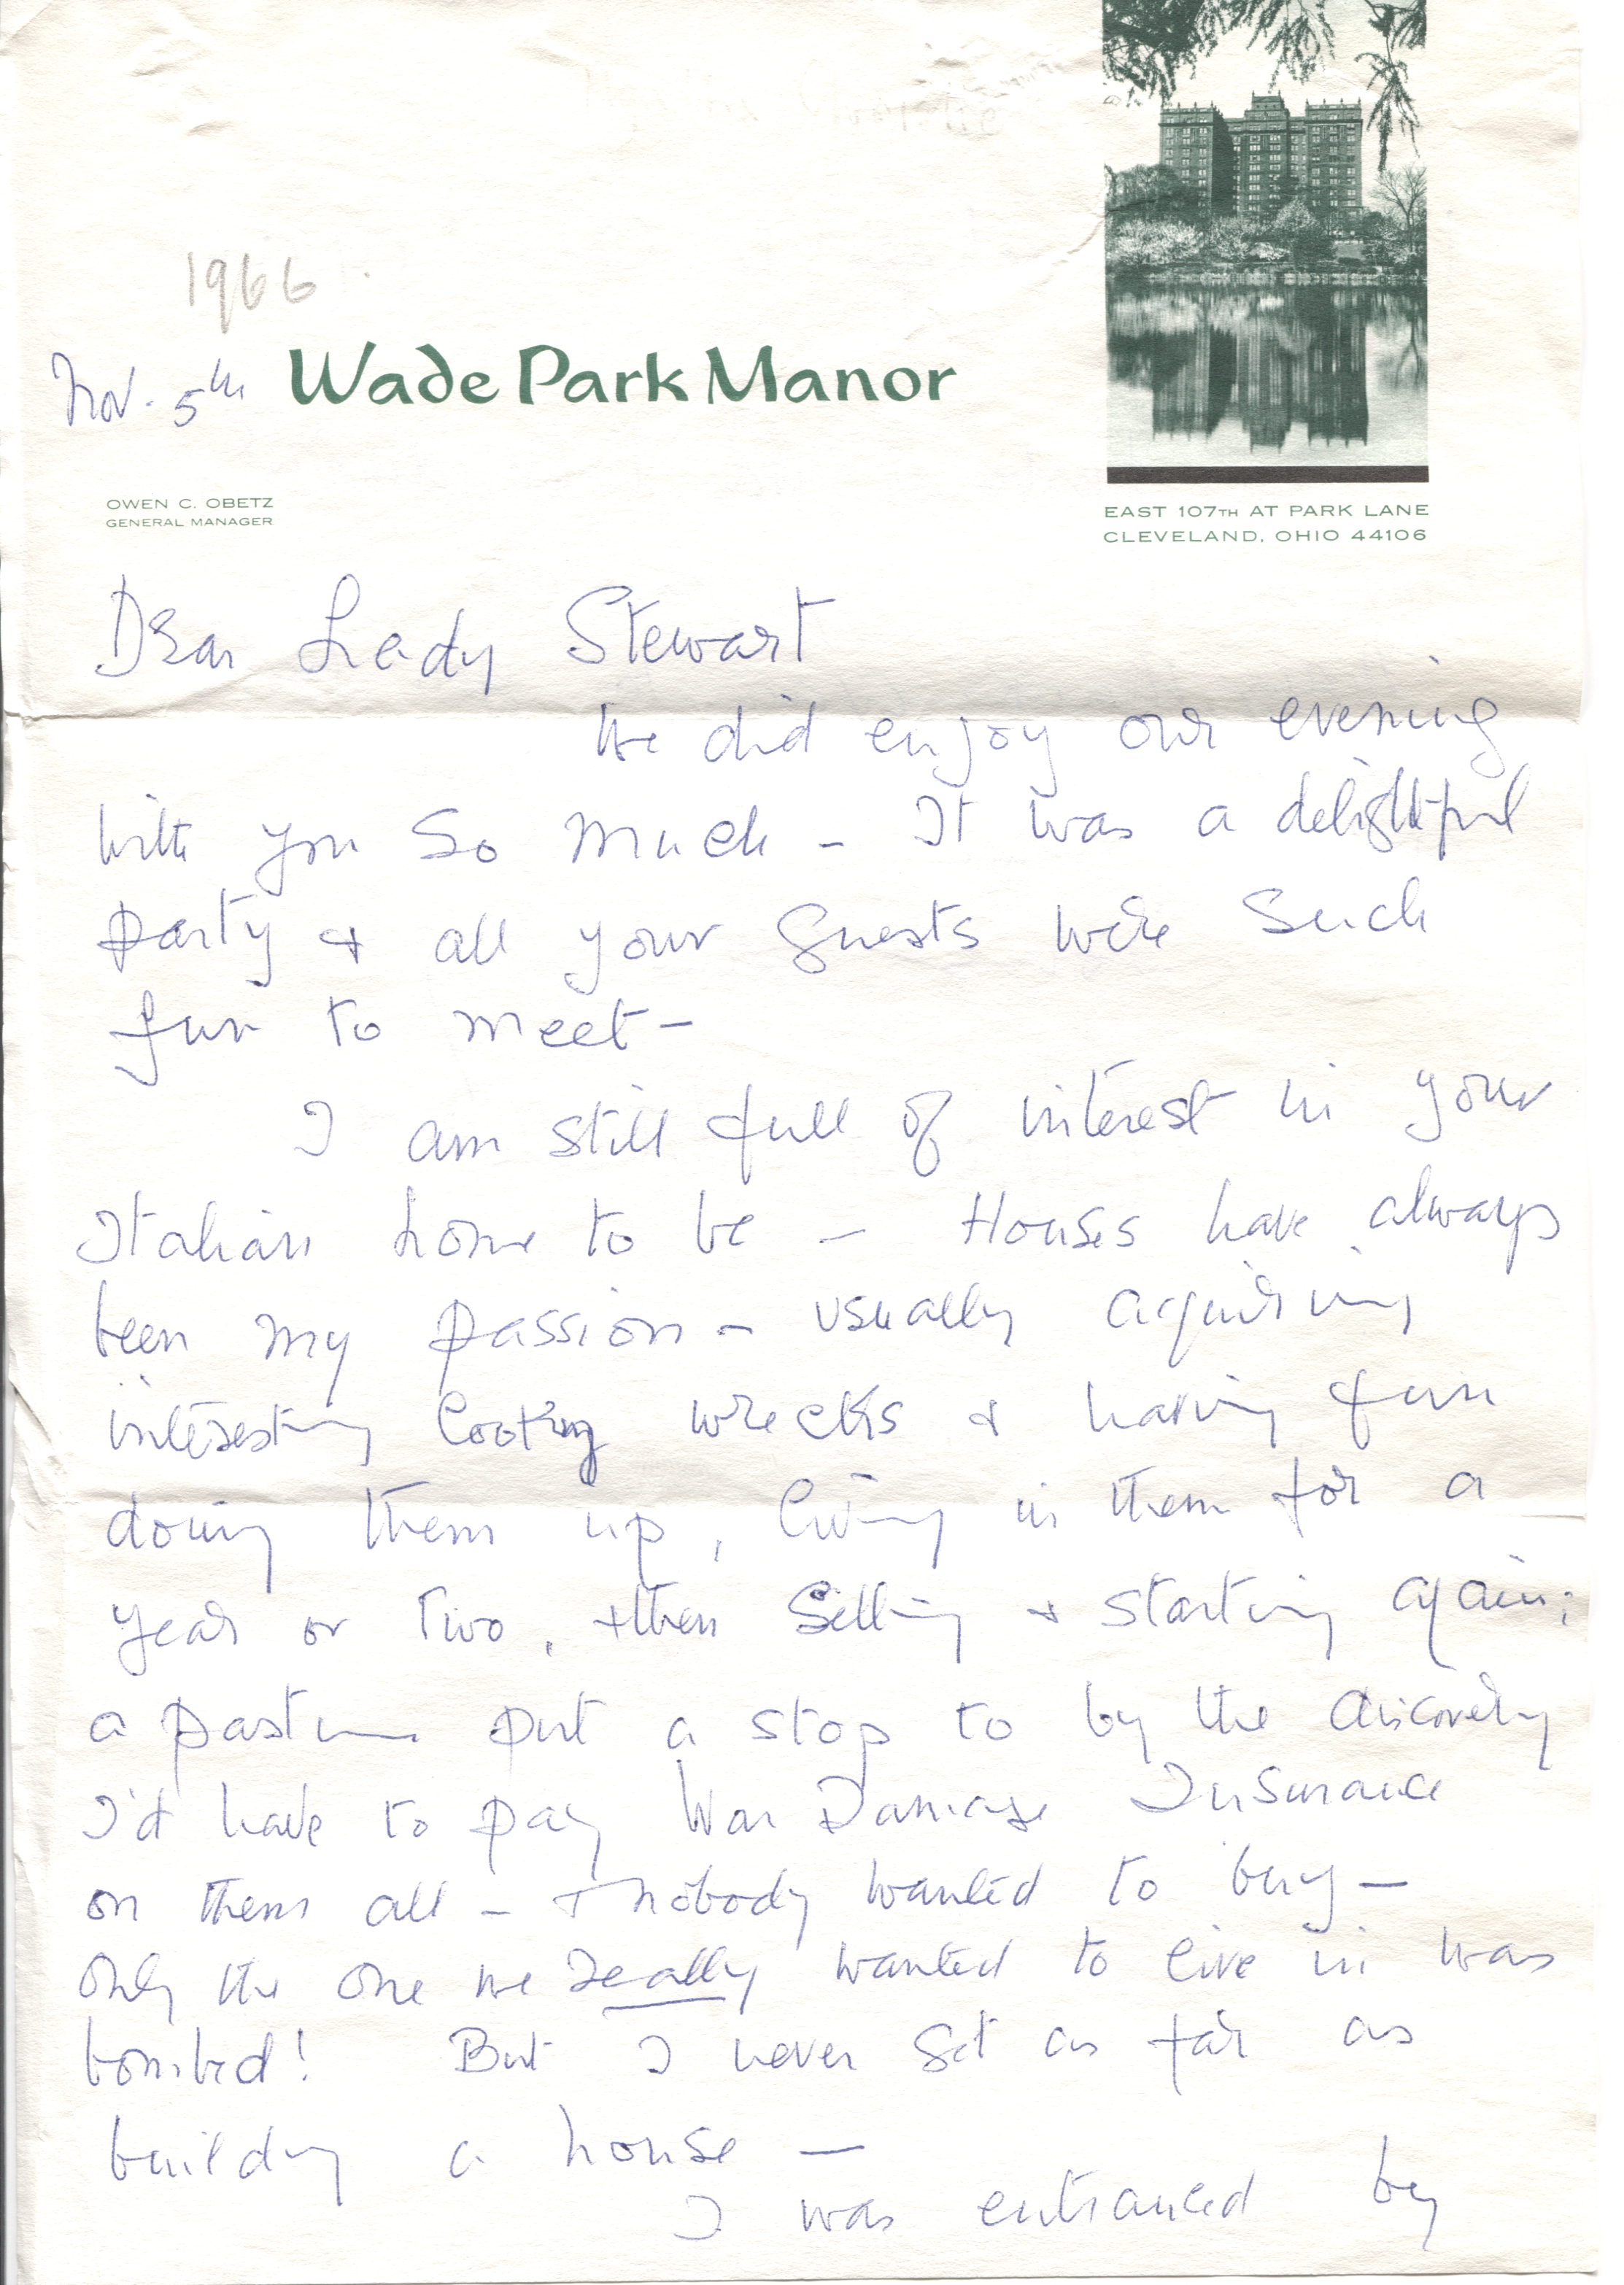 1966
Nov. 5th Wade Park Manor
OWEN C. OBETZ
GENERAL MANAGER
EAST 107TH AT PARK LANE
CLEVELAND, OHIO 44106
Dear Lady Stewart
We did enjoy our evening
with you so much - It was a delightful
party & all your guests were such
fun to meet -
I am still full of interest in your
Italian home to be - Houses have always
been my passion - usually acquiring
interesting looking wrecks & having fun
doing them up, living in them for a
year or two, & then selling & starting again;
a pastime put a stop to by the discovery
I'd have to pay War Damage Insurance
on them all - & nobody wanted to buy -
only the one we really wanted to live in was
bombed! But I never got as far as
building a house -
I was entranced by